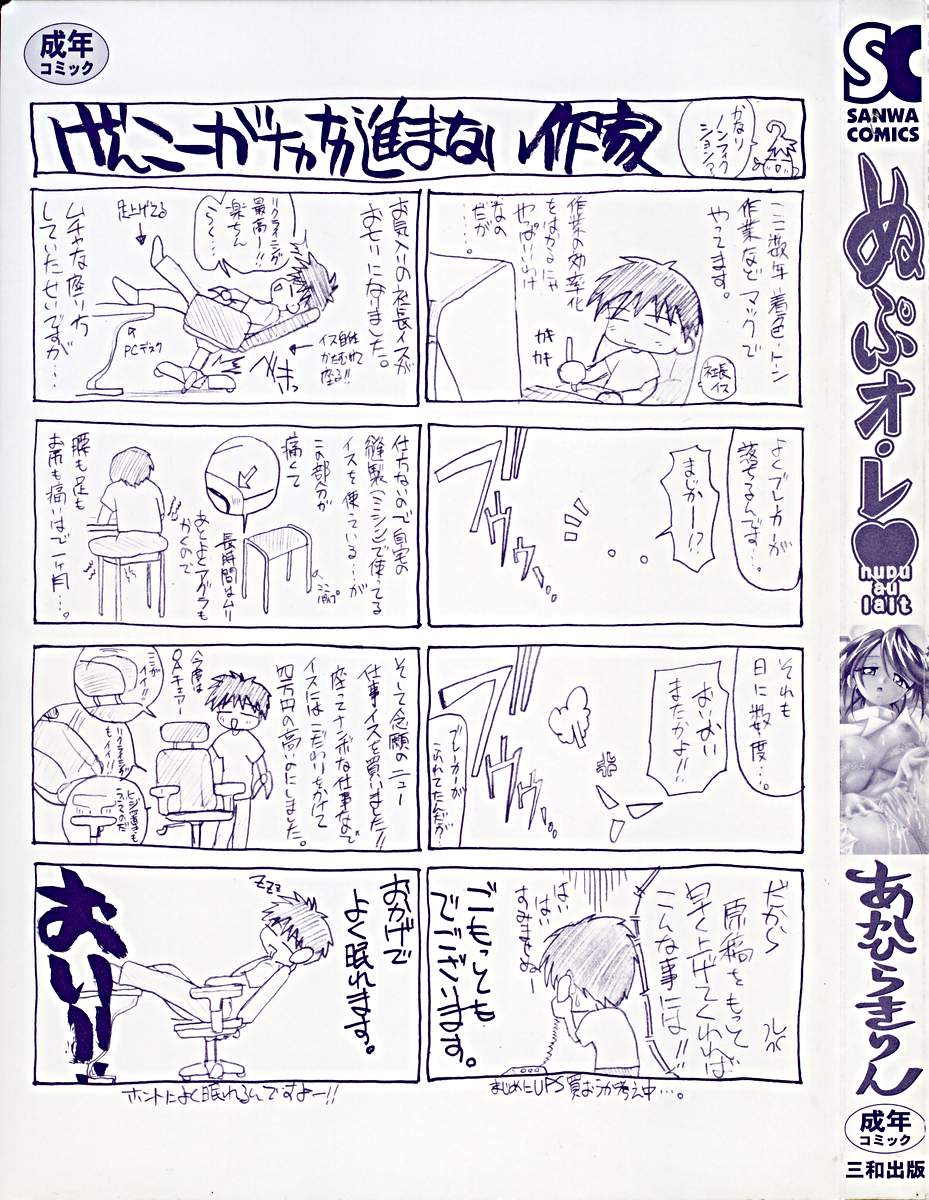 成年
コミック
げんこーがナカナカ進まない作家
かなり
ノンフィク
ション?
ここ数年着色・トン
作業など マックで
やってます。
作業の効率化
をはかるにゃ
やっぱいいわけ
なの
だが
……。
カキ
カキ
社長
イス
よくブレーカーが
落ちるんです…。
まじかー!?
ブッ
それも
日に数度…。
おいおい
またかよ!!
ブッ
ブレーカーが
だから
原稿をもって
早く上げてくれれば
こんな事には!!
はい
はい
すみませ
ごもっとも
でございます。
まじめにUPS買おうか考え中…。
お気入りの社長イスが
おむりになりました。
リクライニングが
最高ー!!
楽ちん
足上げてる
PCデスク
イス自体
かたむけて
座る!!
ムチャな座り方
していたせいですが…
仕方ないので自宅の
縫製(ミシン)で使ってる
イスを使っている…が
この部分が
痛くて
長時間はムリ
あとよくアグラも
かくので
腰も足も
お尻も痛いほで一ヶ月…。
そして念願のニュー
仕事イスを買いました!!
座ってナンボな仕事なので
イスにはこだわりをかけて
四万円の高いのにしました。
今度は
OAチェアー
ここが
イイ!!
リクライニングが
もイイ!!
ヒジ置きも
おかげで
よく眠れます。
ZZZ
おい!!
ホントによく眠れるんですよー!!
SC
SANWA
COMICS
ぬぷオ・レ♥
nupu
au
lait
あかひらきりん
成年
コミック
三和出版